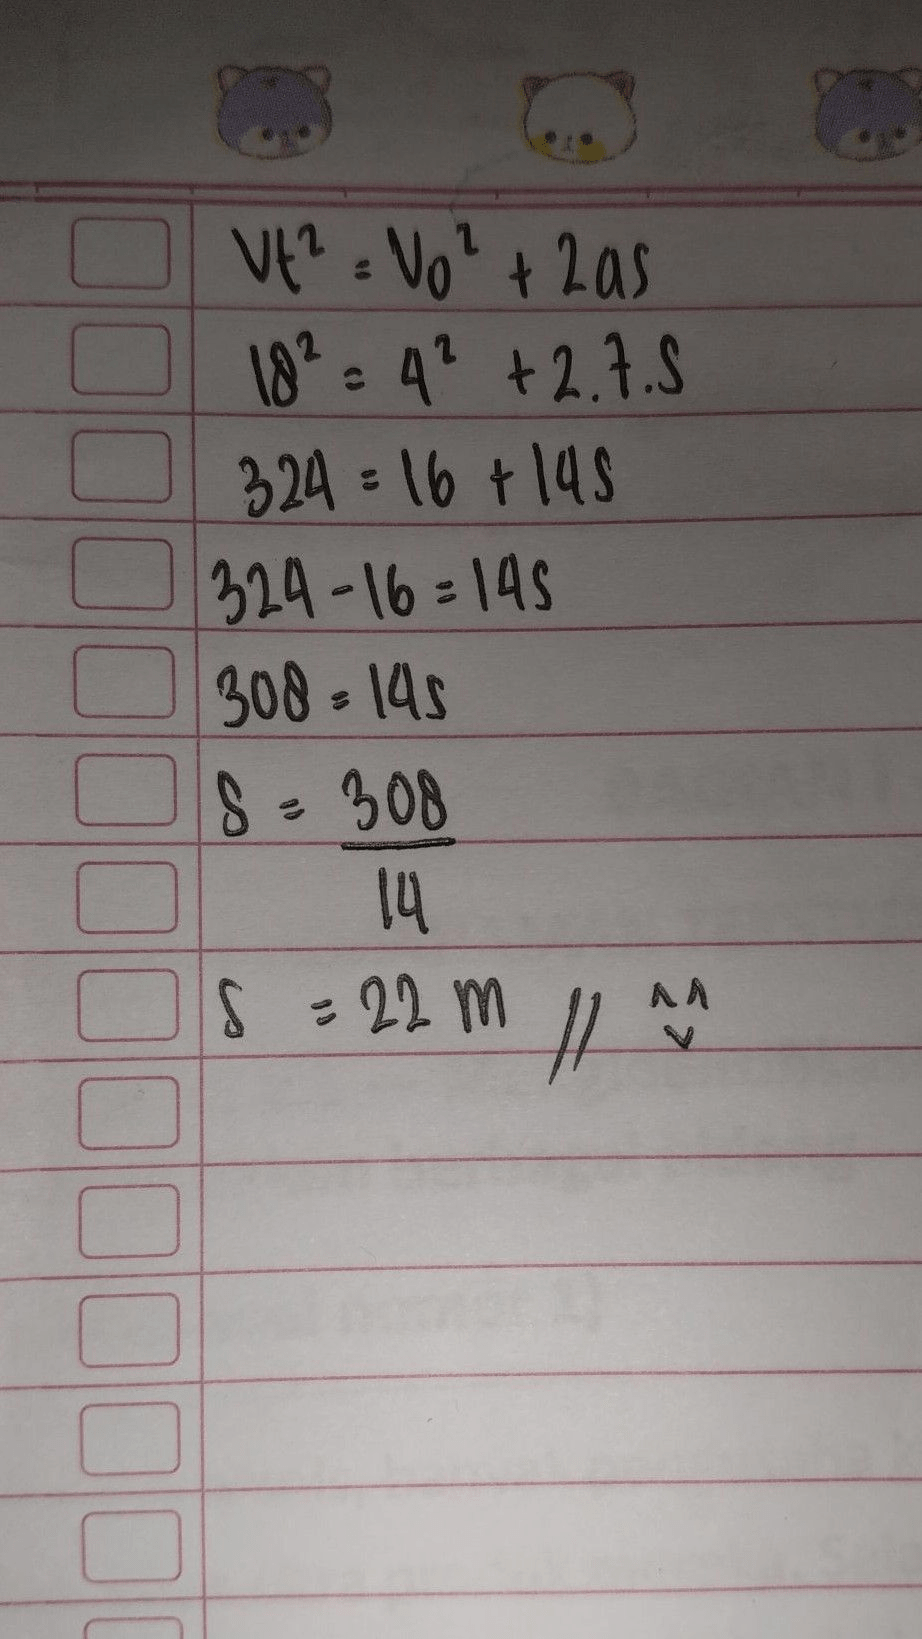 Vt² = Vo² + 2as
18² = 4² + 2.7.S
324 = 16 + 14s
324 - 16 = 14s
308 = 14s
S = 308
14
S = 22 m // ^^